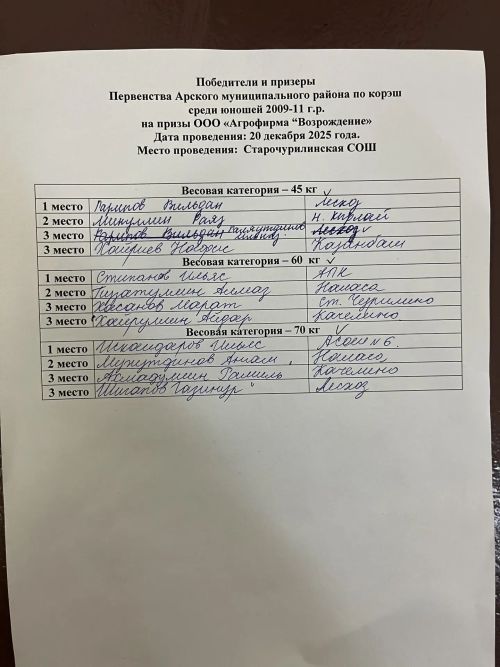 Победители и призеры
Первенства Арского муниципального района по корэш
среди юношей 2009-11 г.р.
на призы ООО «Агрофирма “Возрождение»
Дата проведения: 20 декабря 2025 года.
Место проведения: Старочурилинская СОШ
Весовая категория – 45 кг
1 место Гарипов Вильдан Лесхоз
2 место Миңуллин Раяз Н. Кырлай
3 место
3 место Хайриев Казанбаш
Весовая категория – 60 кг
1 место Степанов Ильяс АПК
2 место Гизатуллин Алмаз Наласа
3 место Хасанов Марат Ст. Чурилино
3 место Хайруллин Айдар Качелино
Весовая категория – 70 кг
1 место Искандаров Ильяс АСОШ №6.
2 место Мухутдинов Наласа
3 место Ахмадуллин Рамиль Качелино
3 место Шигапов Газинур Лесхоз